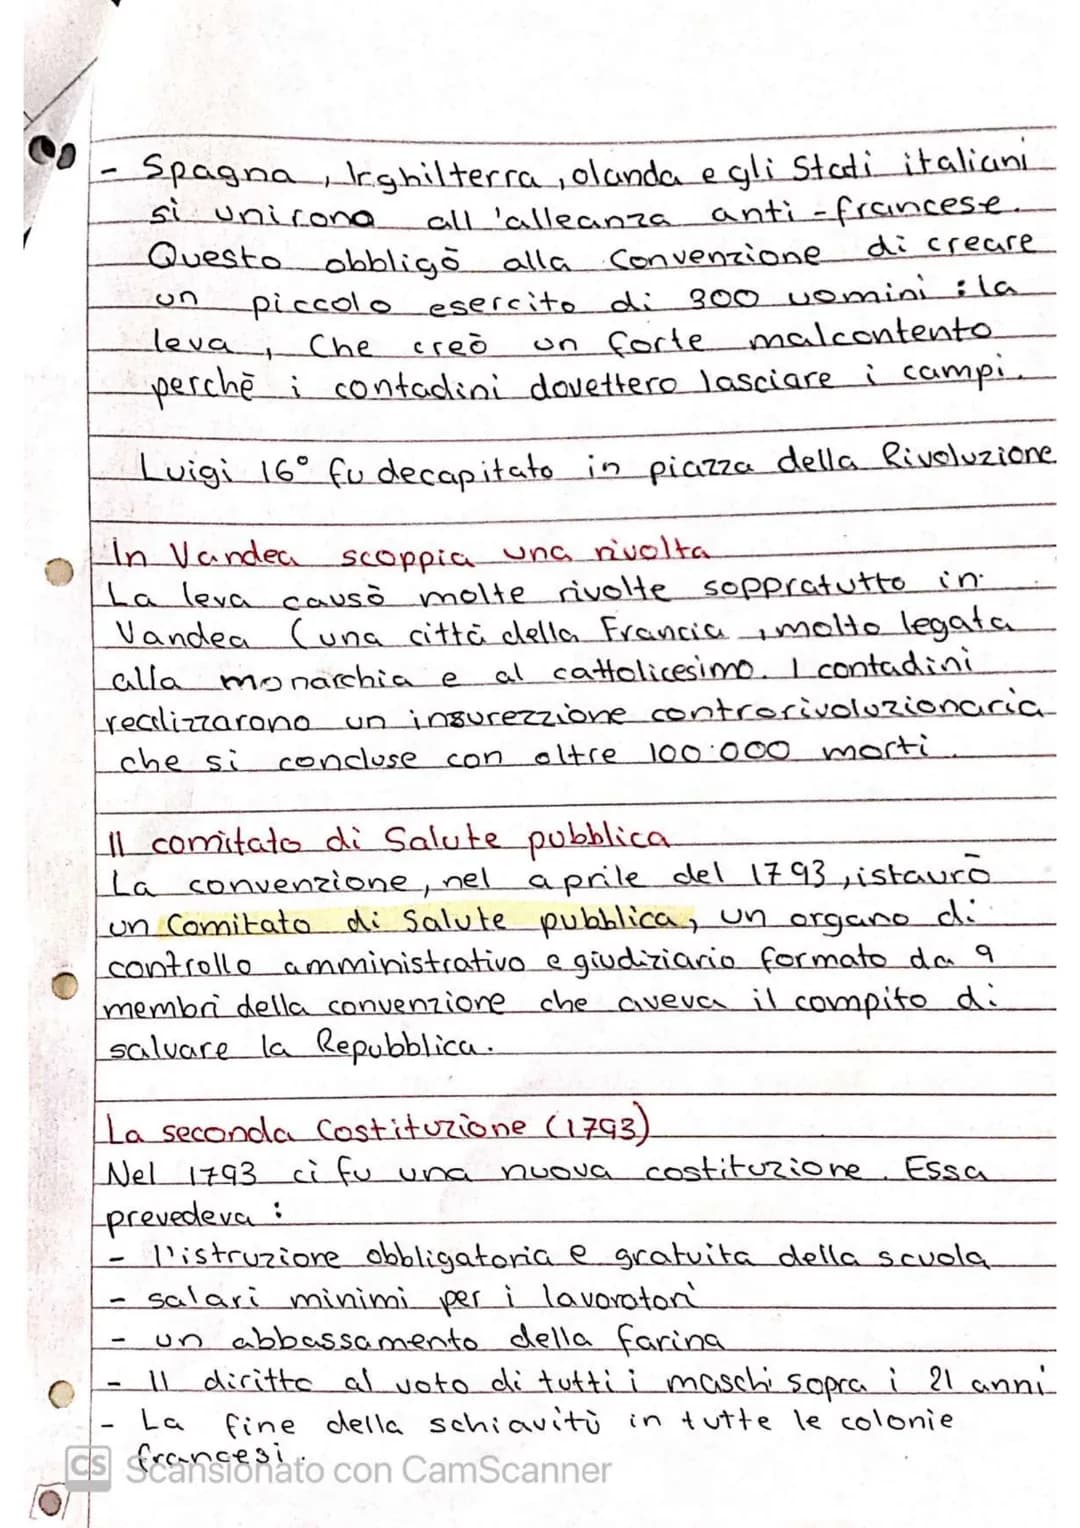 - Spagna, Inghilterra, olanda e gli Stati italiani
si unirono all'alleanza anti-francese.
Questo obbligò alla Convenzione di creare
un piccolo esercito di 300 uomini : la
leva, Che creò un forte malcontento
perchè i contadini dovettero lasciare i campi.
Luigi 16° fu decapitato in piazza della Rivoluzione
In Vandea scoppia una rivolta
La leva causò molte rivolte soppratutto in
Vandea (una città della Francia, molto legata
alla monarchia e al cattolicesimo. I contadini
realizzarono un insurezzione controrivoluzionaria
che si concluse con oltre 100.000 morti.
Il comitato di Salute pubblica
La convenzione, nel aprile del 1793, istaurò
un Comitato di Salute pubblica, un organo di
controllo amministrativo e giudiziario formato da 9
membri della convenzione che aveva il compito di
salvare la Repubblica.
La seconda Costituzione (1793)
Nel 1793 ci fu una nuova costituzione. Essa
prevedeva :
- l'istruzione obbligatoria e gratuita della scuola
- salari minimi per i lavoratori
- un abbassamento della farina
- Il diritto al voto di tutti i maschi sopra i 21 anni
- La fine della schiavitù in tutte le colonie
francesi.
CS Scansionato con CamScanner